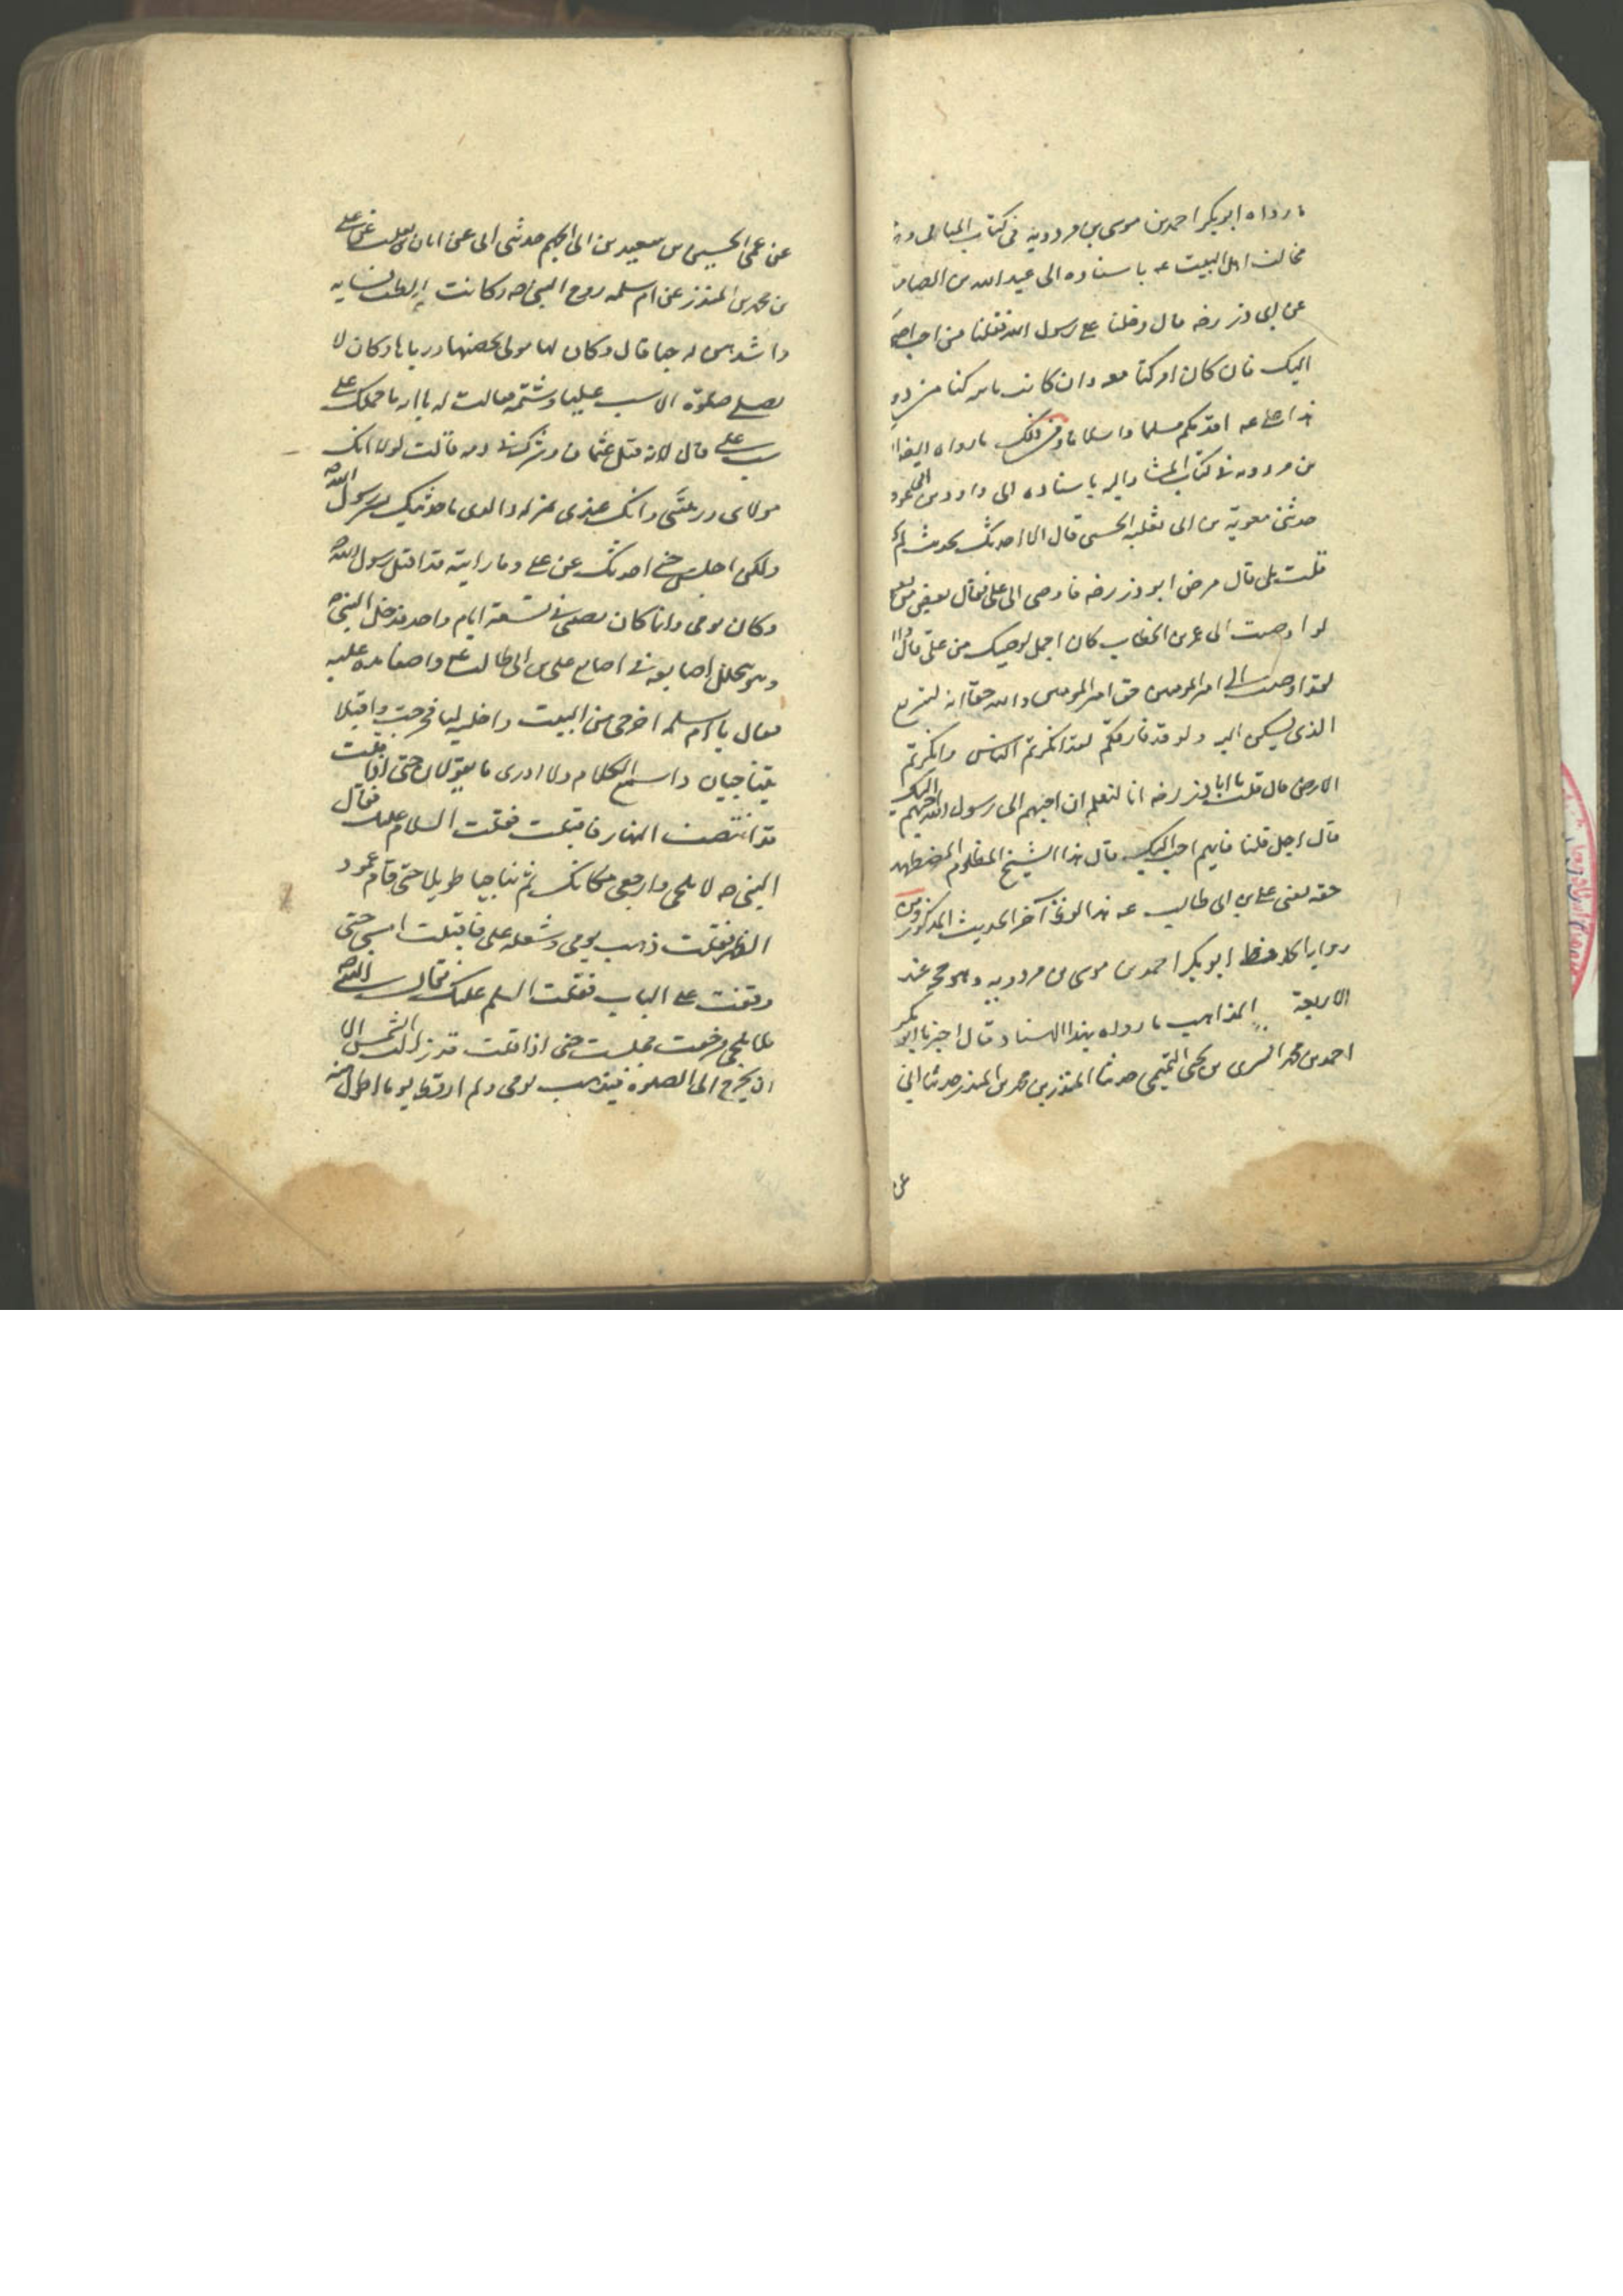 ما رواه ابو بكر احمد بن موسى بن مردويه في كتاب
مخالف اهل البيت عه باسناده الى عبد الله بن الصامت
عن ابى ذر رضه قال دخلنا على رسول الله فقلنا من احب اصحا
اليك فان كان امر كنا معه وان كانت نايبه كنا من دو
هذا على عه اقدمكم سلما واسلاما ومن ذلك ما رواه ايضا
بن مردويه في كتاب المشار اليه باسناده الى داود بن
حدثني معوية بن ابى ثعلبه قال الا احدثك بحديث لم
قلت بلى قال مرض ابو ذر رضه فاوصى الى على فقال بعض من
لو اوصيت الى عمر بن الخطاب كان اجمل لوصيتك من على قال
لقد اوصيت الى امير المومنين حق امير المومنين والله حقا انه
الذى يسكن اليه ولو قد فارقكم لقد انكرتم الناس وانكرتم
الارض قال قلت يا ابا ذر رضه انا لنعلم ان احبهم الى رسول الله احبهم اليك
قال اجل قلنا فايهم احب اليك قال هذا الشيخ المظلوم المضطهد
حقه يعنى على بن ابى طالب عه هذا آخر الحديث المذكور ومن
الحافظ ابو بكر احمد بن موسى بن مردويه وهو حجه عند
الاربعة المذاهب ما رواه بهذا الاسناد قال اخبرنا ابو بكر
احمد بن محمد السرى بن يحيى التميمى حدثنا المنذر بن محمد بن المنذر حدثنا ابى
عن
عن عمى الحسين بن سعيد بن ابى الجهم حدثنى ابى عن ابان بن تغلب عن على
بن محمد بن المنذر عن ام سلمه زوج النبى صه وكانت الطف نسايه
واشدهن له حبا قال وكان لها مولى يحضنها ورباها وكان لا
يصلى صلوة الا سب عليا وشتمه فقالت له يا ابه ما حملك على
سب على قال لانه قتل عثمان وشرك فى دمه قالت لولا انك
مولاى وربيتنى وانك عندى بمنزله والدى ما حدثتك بسر رسول الله
ولكن اجلس حتى احدثك عن على وما رايته قد اقبل رسول الله
وكان يومى وانما كان نصيبى فى تسعة ايام واحد فدخل النبى
وهو يخلل اصابعه فى اصابع على بن ابى طالب عه واضعا يده عليه
فقال يا ام سلمه اخرجى من البيت واخليه لنا فخرجت واقبلا
يتناجيان واسمع الكلام ولا ادرى ما يقولان حتى اذا قلت
قد انتصف النهار فاقبلت فقلت السلام عليك فقال
النبى صه لا تلجى وارجعى مكانك ثم تناجيا طويلا حتى قام عمود
الظهر فقلت ذهب يومى وشغله على فاقبلت امشى حتى
وقفت على الباب فقلت السلم عليك فقال رسول الله
فلا تلجى فرجعت فجلست حتى اذا قلت قد زالت الشمس الا
ان يخرج الى الصلوة فيذهب يومى ولم ار قط يوما اطول منه